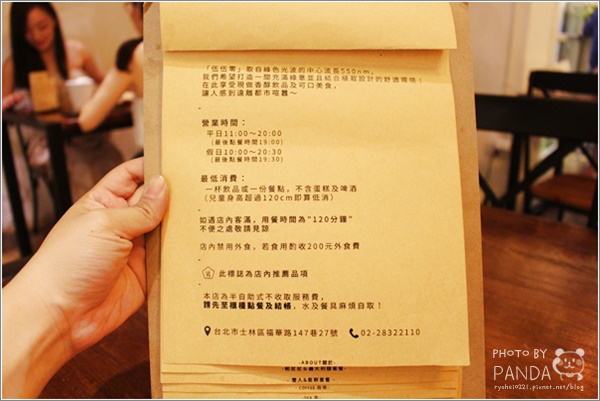 「伍伍零」取自綠色光波的中心波長550nm，
我們希望打造一間充滿綠意並且結合極致設計的舒適環境！
在此享受現做香醇飲品及可口美食，
讓人感到遠離都市喧囂～
-
營業時間：
平日11:00～20:00
(最後點餐時間19:00)
假日10:00～20:30
(最後點餐時間19:30)
-
最低消費：
一杯飲品或一份餐點，不含蛋糕及啤酒
(兒童身高超過120cm即算低消)
-
如遇店內客滿，用餐時間為"120分鐘"
不便之處敬請見諒
-
店內禁用外食，若食用酌收200元外食費
-
此標誌為店內推薦品項
-
本店為半自助式不收取服務費，
請先至櫃檯點餐及結帳，水及餐具麻煩自取！
台北市士林區福華路147巷27號 02-28322110
-ABOUT關於-
COFFEE
PHOTO BY
PANDA
ryohei0221.pixnet.net/blog